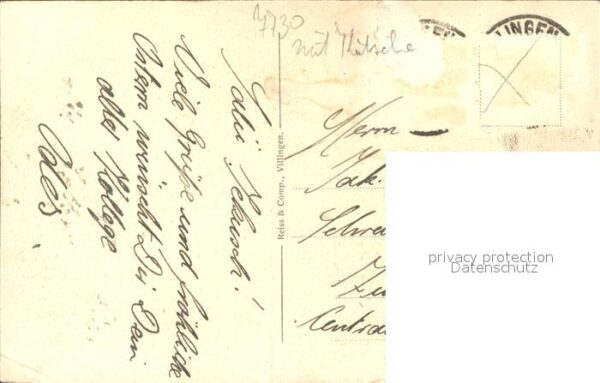 7730
mit Kutsche
LINGEN
Viele Grüße und fröhliche
Ostern wünscht Dir Dein
alter Kollege
Reiss & Comp., Villingen.
Herrn
Jak.
Schrei
Central
privacy protection
Datenschutz